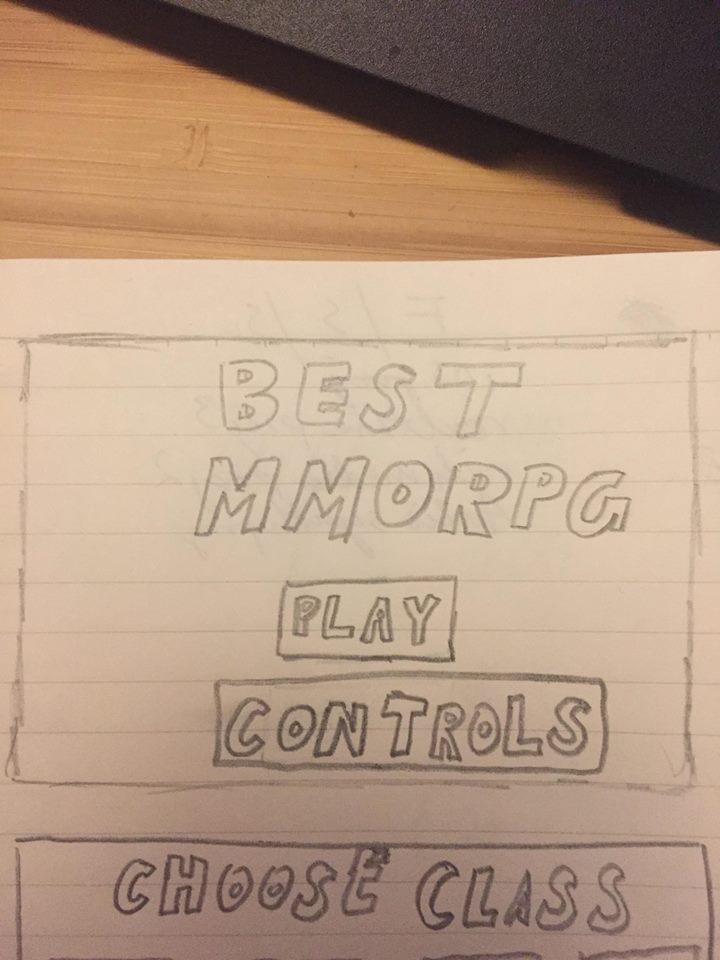 BEST
MMORPG
PLAY
CONTROLS
CHOOSE CLASS